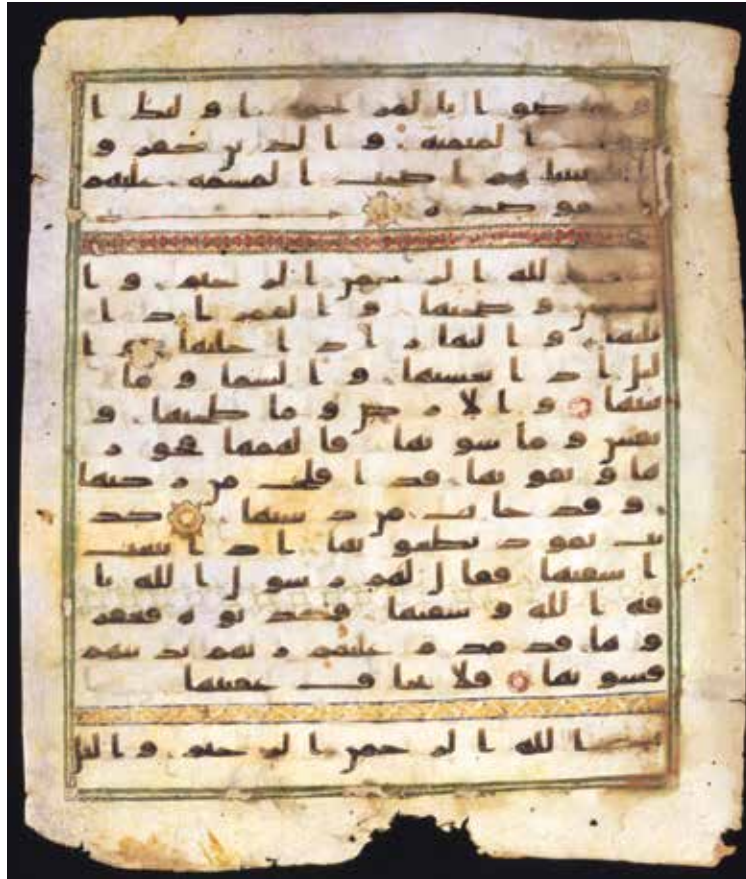 و تواصوا بالمرحمه اوليك ا
صحب الميمنه والذين كفرو
ا بايتنا هم اصحب المشمه عليهم
نار موصده
بسم الله الرحمن الرحيم وا
لشمس وضحيها والقمر اذا
تليها والنهار اذا جليها وا
ليل اذا يغشيها والسما وما
بنيها والارض وما طحيها و
نفس وما سويها فالهمها فجور
ها وتقويها قد افلح من زكيها
وقد خاب من دسيها كذ
بت ثمود بطغويها اذ انبعث
اشقيها فقال لهم رسول الله نا
قه الله وسقيها فكذبوه فعقر
وها فدمدم عليهم ربهم بذنبهم
فسويها فلا يخاف عقبيها
بسم الله الرحمن الرحيم واليل